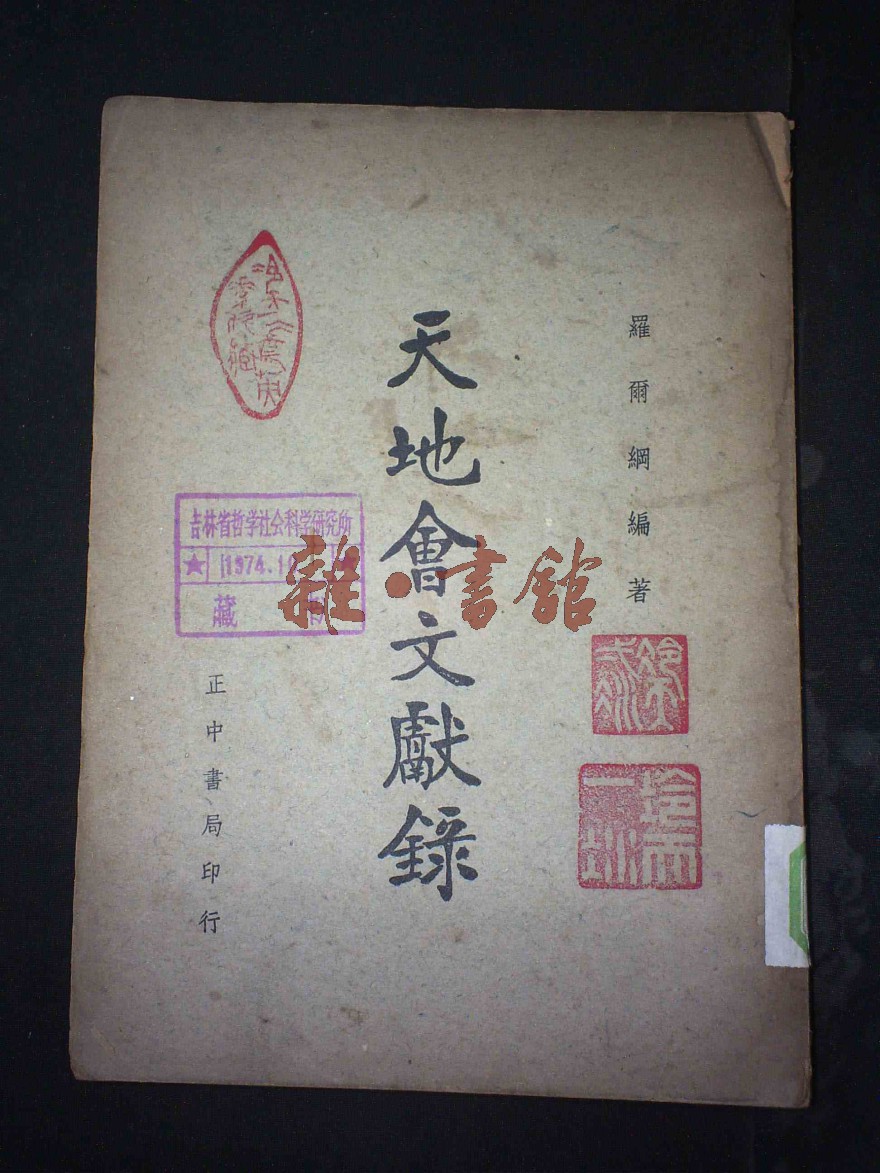 羅爾綱編著
天地會文獻錄
正中書局印行
吉林省哲学社会科学研究所
★ 1974.1
藏
雜·書館